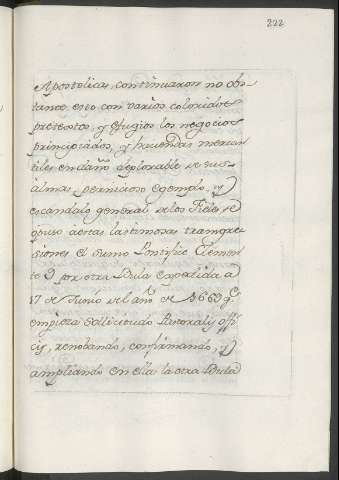 222
Apostolicas, continuaron no obs-
tante eso con varios coloridos
pretextos, y efugios los negocios
principiados, y haciendas mercan
tiles en daño deplorable de sus
almas, pernicioso egemplo, y
escandalo general de los Fieles, se
opuso à estas lastimosas transgre
siones el Sumo Pontifice Clemen
te 9 por otra Bula expedida a
17 de Junio del año de 1669 q.e
empieza Sollicitudo Pastoralis offi
cij, renobando, confirmando, y
ampliando en ella la otra Bula